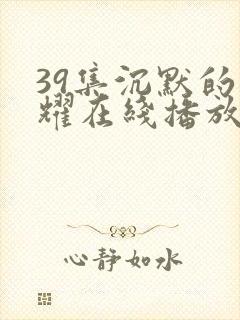 39集沉默的
耀在线播放
心静如水